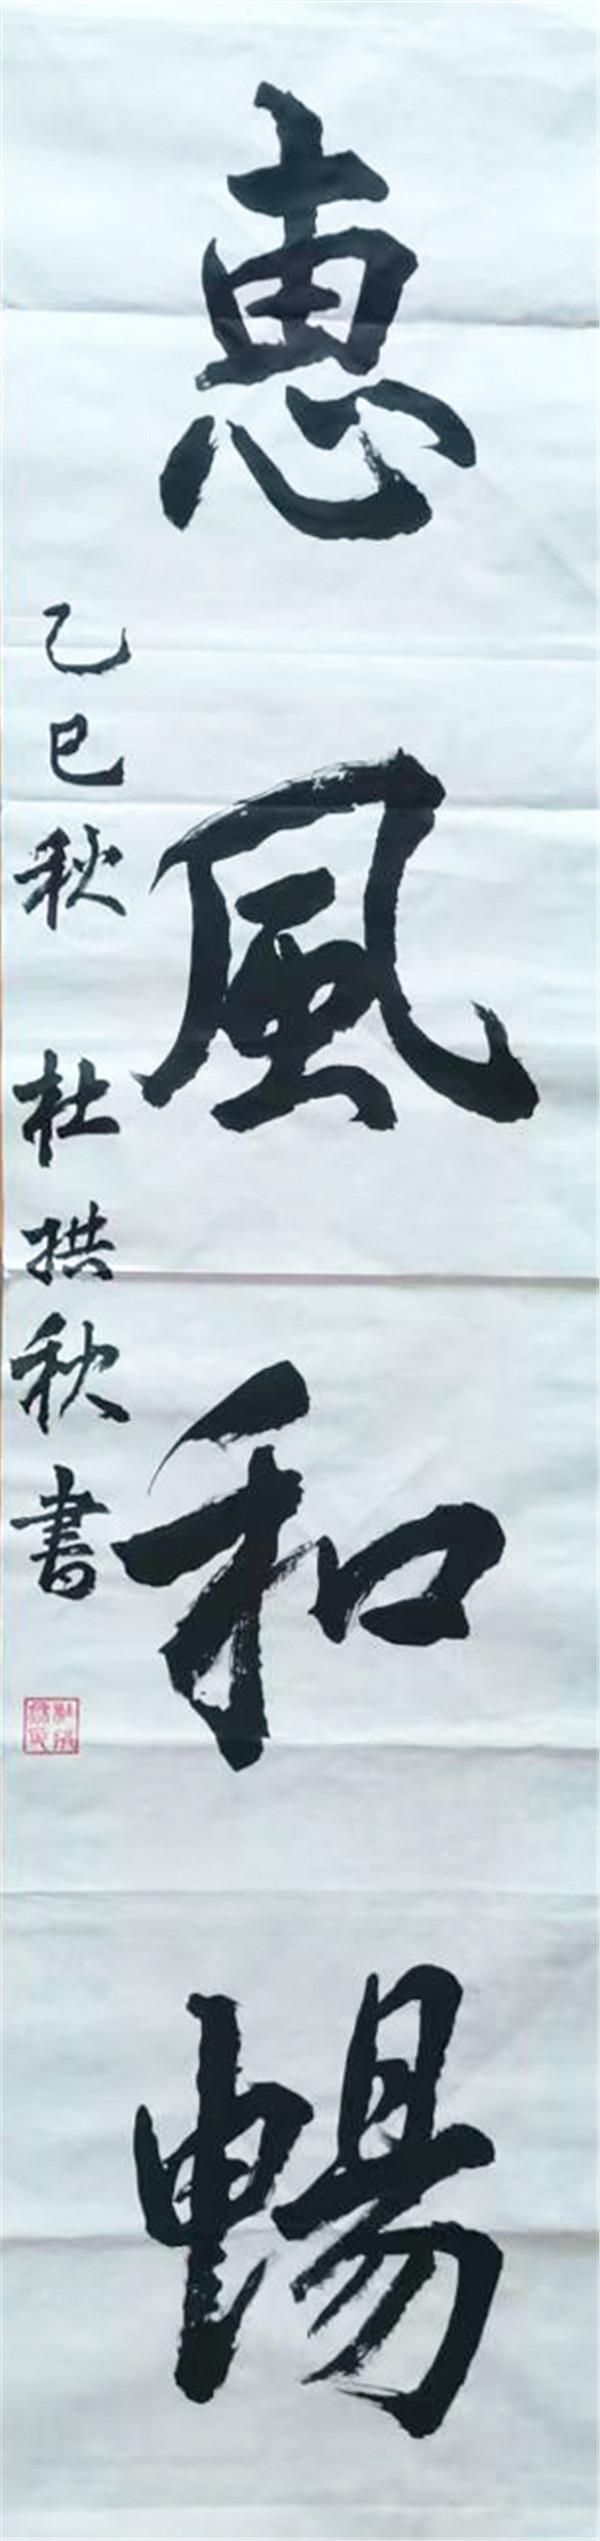 惠風和暢
乙巳秋 杜拱秋書